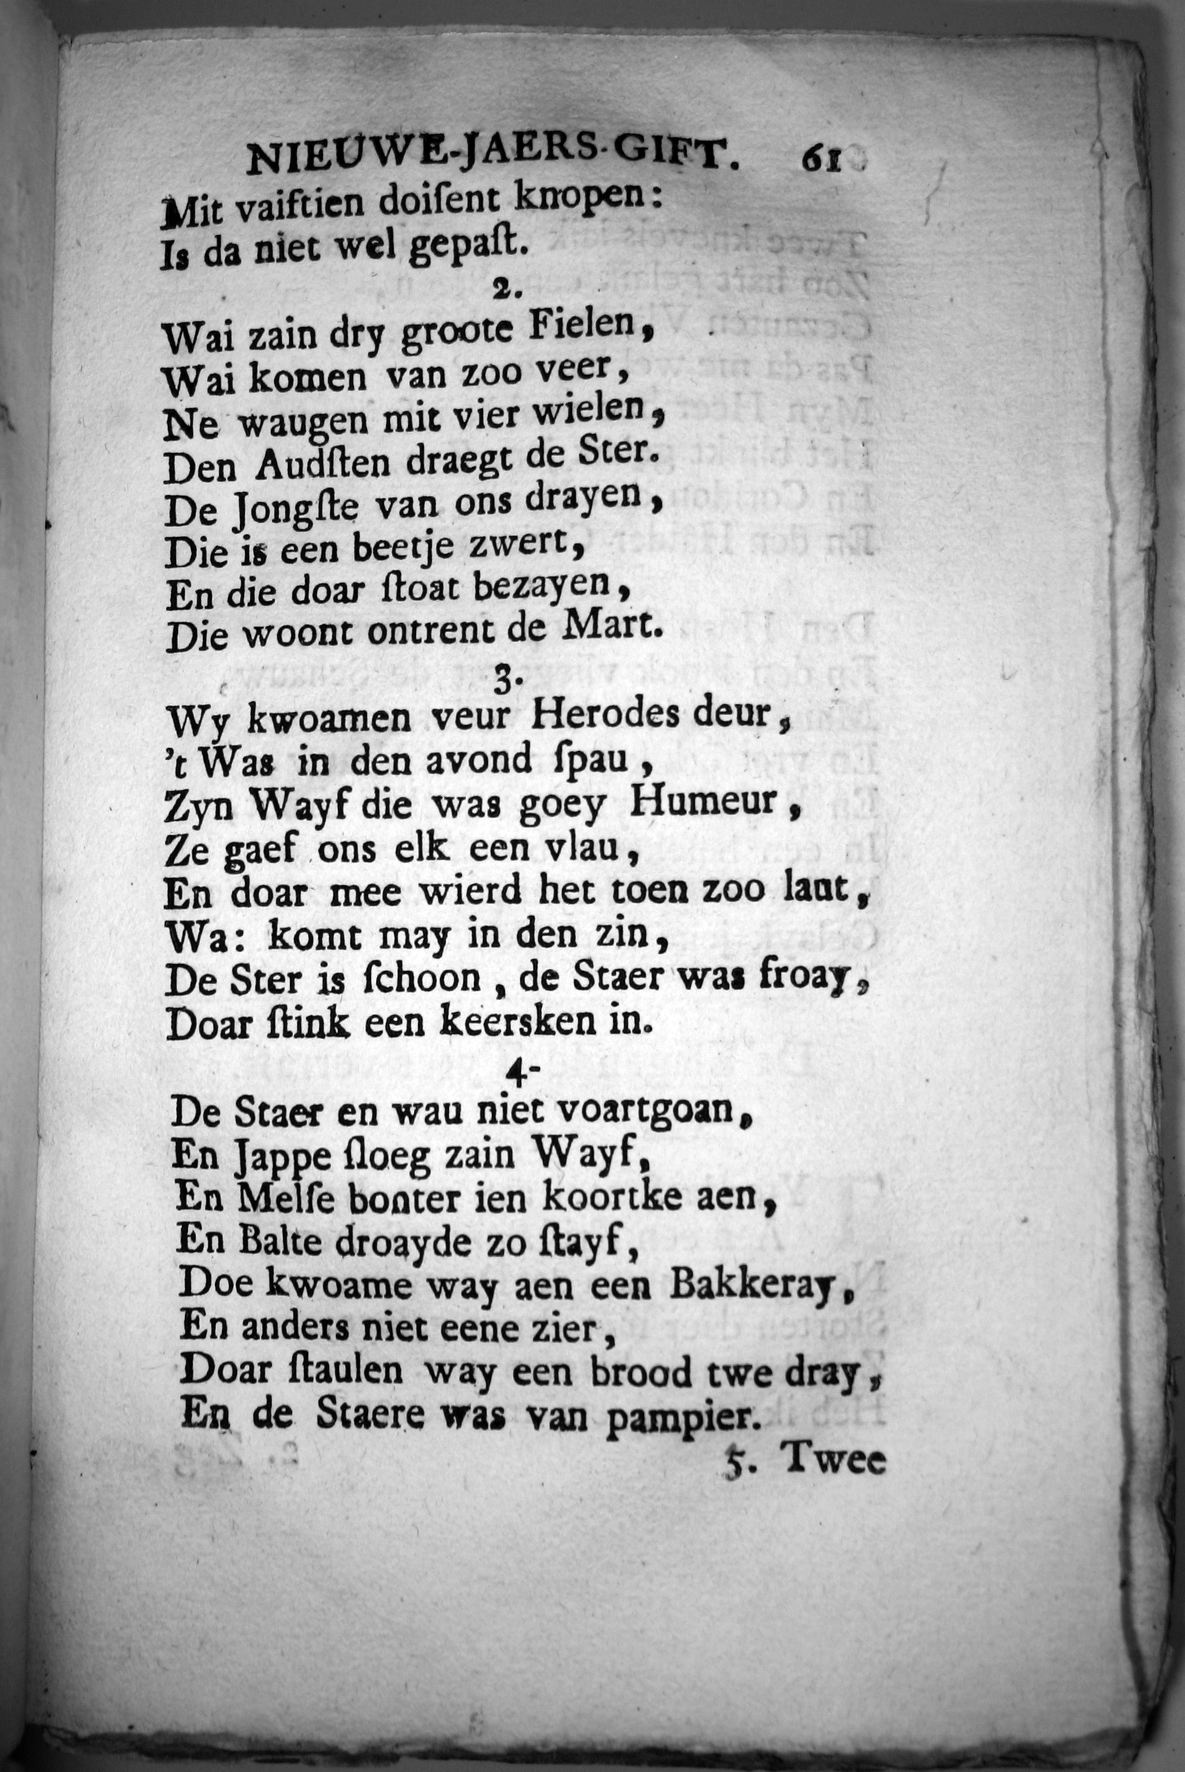 NIEUWE-JAERS-GIFT. 61
Mit vaiftien doiſent knopen:
Is da niet wel gepaſt.
2.
Wai zain dry groote Fielen,
Wai komen van zoo veer,
Ne waugen mit vier wielen,
Den Audſten draegt de Ster.
De Jongſte van ons drayen,
Die is een beetje zwert,
En die doar ſtoat bezayen,
Die woont ontrent de Mart.
3.
Wy kwoamen veur Herodes deur,
't Was in den avond ſpau,
Zyn Wayf die was goey Humeur,
Ze gaef ons elk een vlau,
En doar mee wierd het toen zoo laut,
Wa: komt may in den zin,
De Ster is ſchoon, de Staer was froay,
Doar ſtink een keersken in.
4-
De Staer en wau niet voartgoan,
En Jappe ſloeg zain Wayf,
En Melſe bonter ien koortke aen,
En Balte droayde zo ſtayf,
Doe kwoame way aen een Bakkeray,
En anders niet eene zier,
Doar ſtaulen way een brood twe dray,
En de Staere was van pampier.
5. Twee